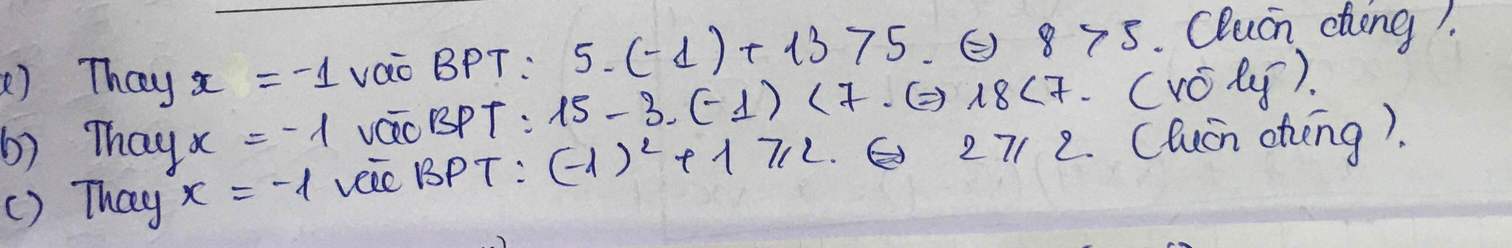 a) Thay x = -1 vào BPT: 5.(-1) + 13 > 5. ⇔ 8 > 5. (luôn đúng).
b) Thay x = -1 vào BPT: 15 - 3.(-1) < 7. ⇔ 18 < 7. (vô lý).
c) Thay x = -1 vào BPT: (-1)² + 1 ≥ 2. ⇔ 2 ≥ 2. (luôn đúng).